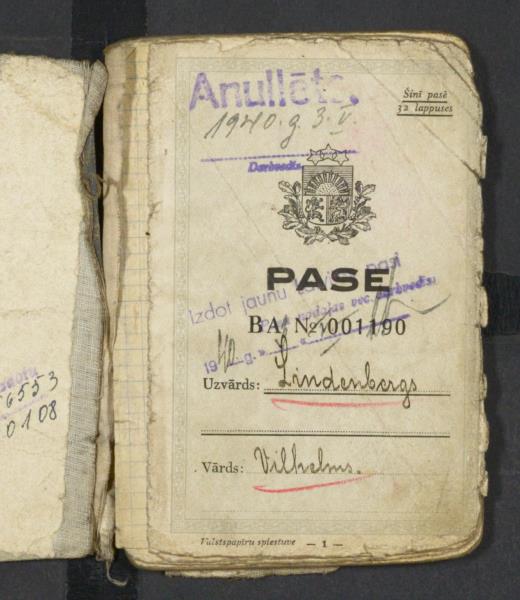 Anullēts.
Šinī pasē
32 lappuses
1940. g. 3. V.
Darbvedis
PASE
Izdot jaunu pasi
nodaļas vec. darbvedis:
BA № 001190
1940. g.
Uzvārds: Lindenbergs
Vārds: Vilhelms.
6553
0108
Valstspapīru spiestuve — 1 —